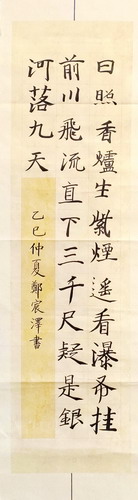 日照香爐生紫煙遙看瀑布挂
前川飛流直下三千尺疑是銀
河落九天
乙巳仲夏鄭宸澤書